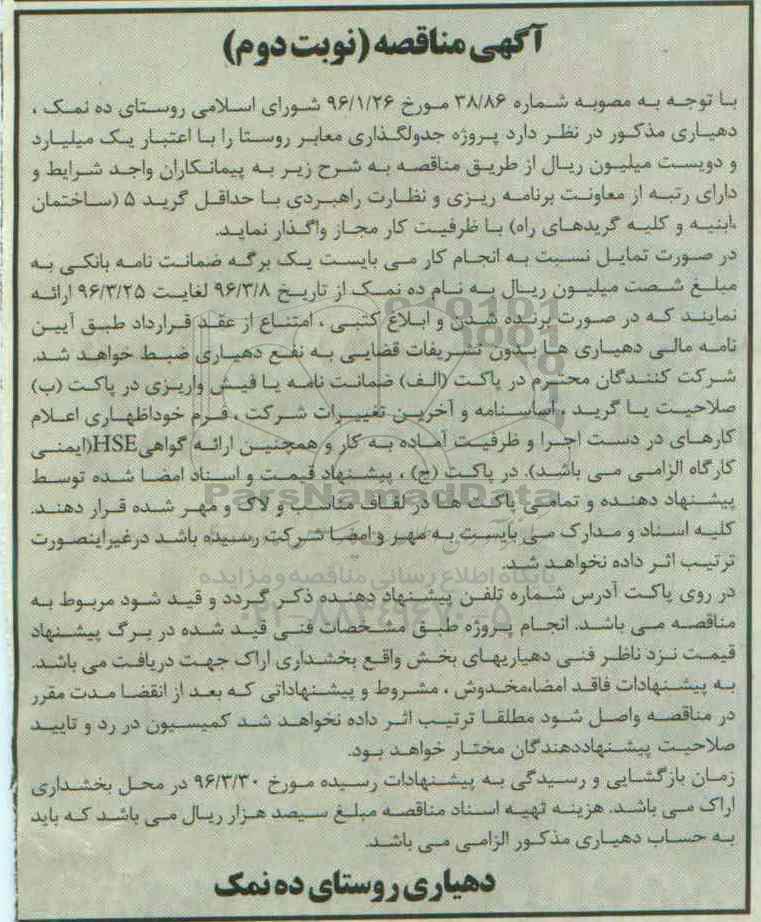 آگهی مناقصه (نوبت دوم)
با توجه به مصوبه شماره ۳۸/۸۶ مورخ ۹۶/۱/۲۶ شورای اسلامی روستای ده نمک ،
دهیاری مذکور در نظر دارد پروژه جدولگذاری معابر روستا را با اعتبار یک میلیارد
و دویست میلیون ریال از طریق مناقصه به شرح زیر به پیمانکاران واجد شرایط و
دارای رتبه از معاونت برنامه ریزی و نظارت راهبردی با حداقل گرید ۵ (ساختمان
،ابنیه و کلیه گریدهای راه) با ظرفیت کار مجاز واگذار نماید.
در صورت تمایل نسبت به انجام کار می بایست یک برگه ضمانت نامه بانکی به
مبلغ شصت میلیون ریال به نام ده نمک از تاریخ ۹۶/۳/۸ لغایت ۹۶/۳/۲۵ ارائه
نمایند که در صورت برنده شدن و ابلاغ کتبی ، امتناع از عقد قرارداد طبق آیین
نامه مالی دهیاری ها بدون تشریفات قضایی به نفع دهیاری ضبط خواهد شد.
شرکت کنندگان محترم در پاکت (الف) ضمانت نامه یا فیش واریزی در پاکت (ب)
صلاحیت یا گرید ، اساسنامه و آخرین تغییرات شرکت ، فرم خوداظهاری اعلام
کارهای در دست اجرا و ظرفیت آماده به کار و همچنین ارائه گواهیHSE(ایمنی
کارگاه الزامی می باشد). در پاکت (ج) ، پیشنهاد قیمت و اسناد امضا شده توسط
پیشنهاد دهنده و تمامی پاکت ها در لفاف مناسب و لاک و مهر شده قرار دهند.
کلیه اسناد و مدارک می بایست به مهر و امضا شرکت رسیده باشد درغیراینصورت
ترتیب اثر داده نخواهد شد.
در روی پاکت آدرس شماره تلفن پیشنهاد دهنده ذکر گردد و قید شود مربوط به
مناقصه می باشد. انجام پروژه طبق مشخصات فنی قید شده در برگ پیشنهاد
قیمت نزد ناظر فنی دهیاریهای بخش واقع بخشداری اراک جهت دریافت می باشد.
به پیشنهادات فاقد امضا،مخدوش ، مشروط و پیشنهاداتی که بعد از انقضا مدت مقرر
در مناقصه واصل شود مطلقا ترتیب اثر داده نخواهد شد کمیسیون در رد و تایید
صلاحیت پیشنهاددهندگان مختار خواهد بود.
زمان بازگشایی و رسیدگی به پیشنهادات رسیده مورخ ۹۶/۳/۳۰ در محل بخشداری
اراک می باشد. هزینه تهیه اسناد مناقصه مبلغ سیصد هزار ریال می باشد که باید
به حساب دهیاری مذکور الزامی می باشد.
دهیاری روستای ده نمک
ParsNamadData
پایگاه اطلاع رسانی مناقصه و مزایده